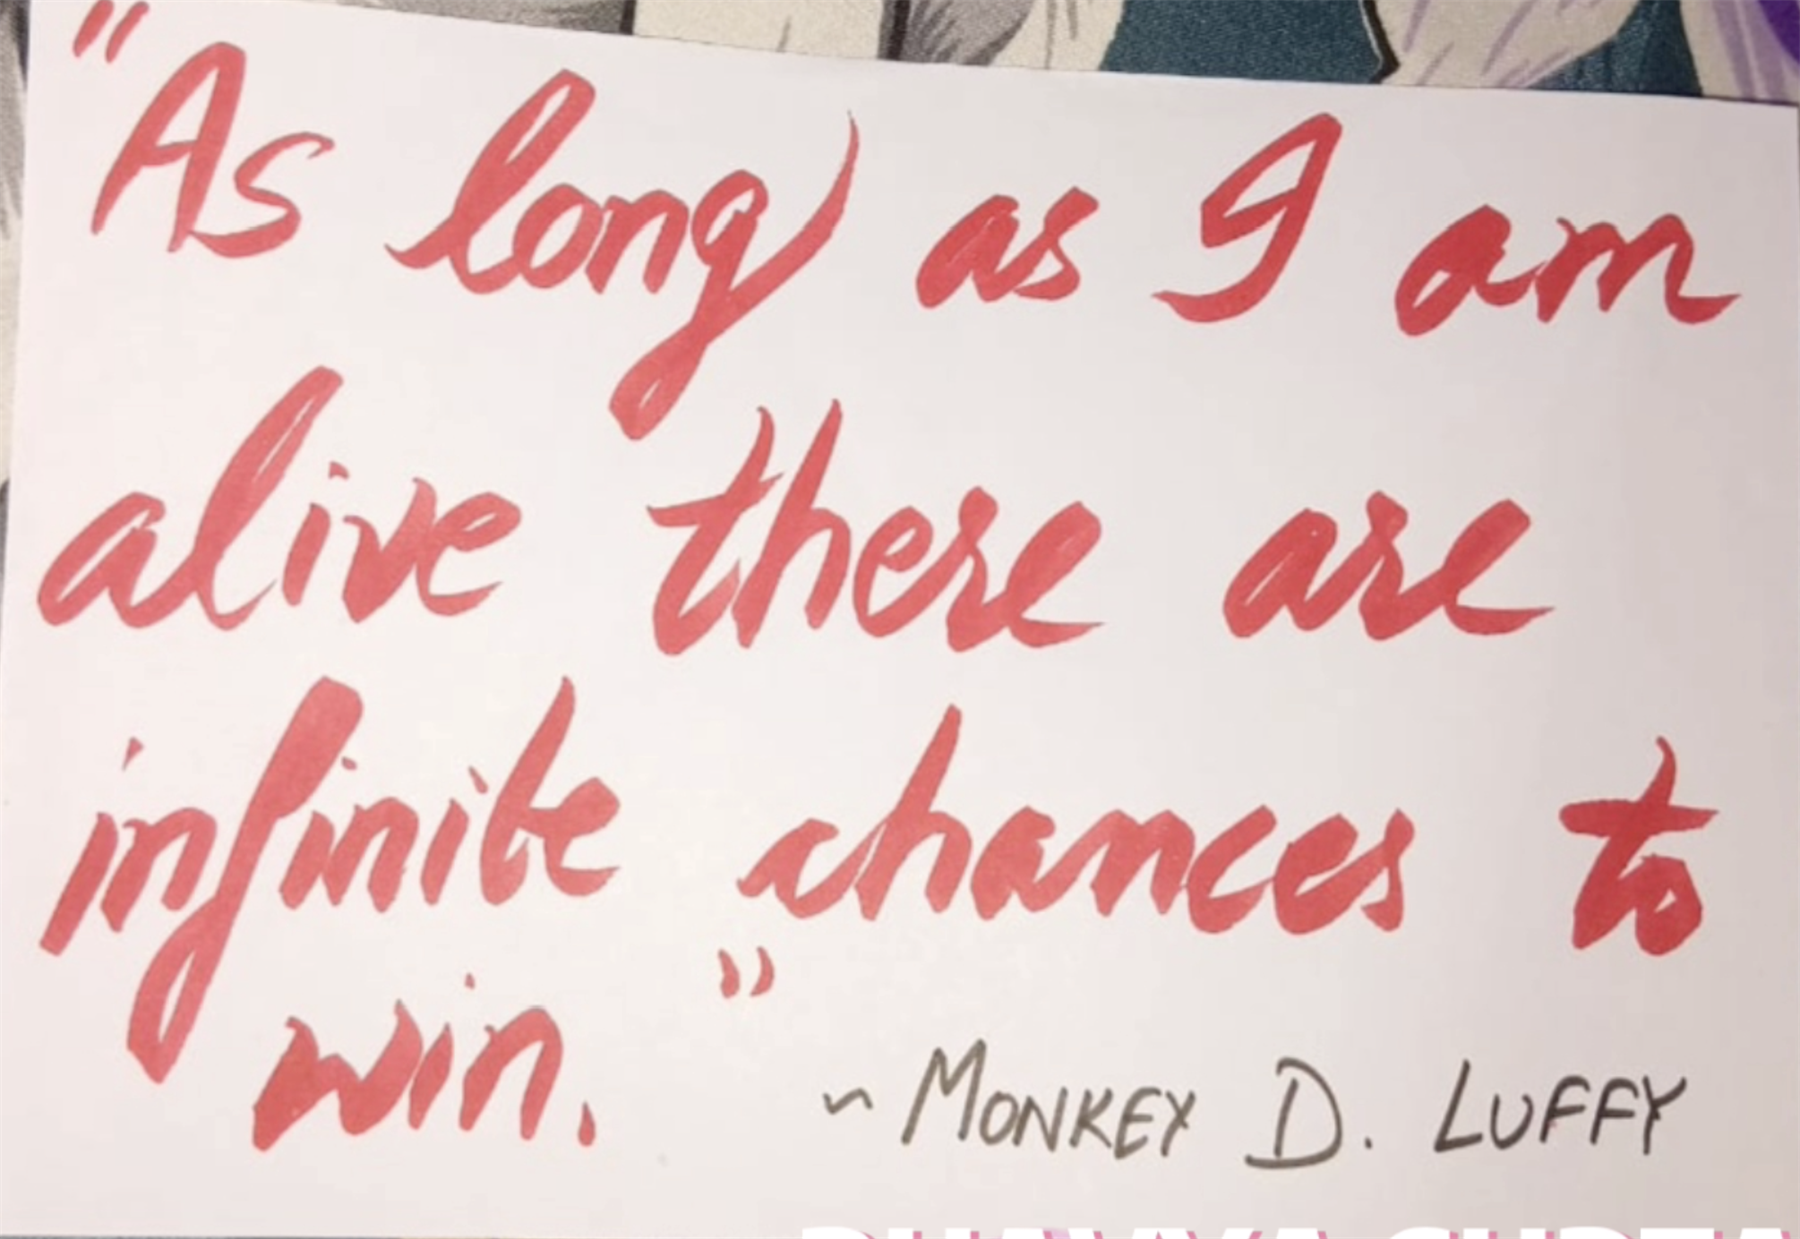 "As long as I am
alive there are
infinite chances to
win."
~ MONKEY D. LUFFY